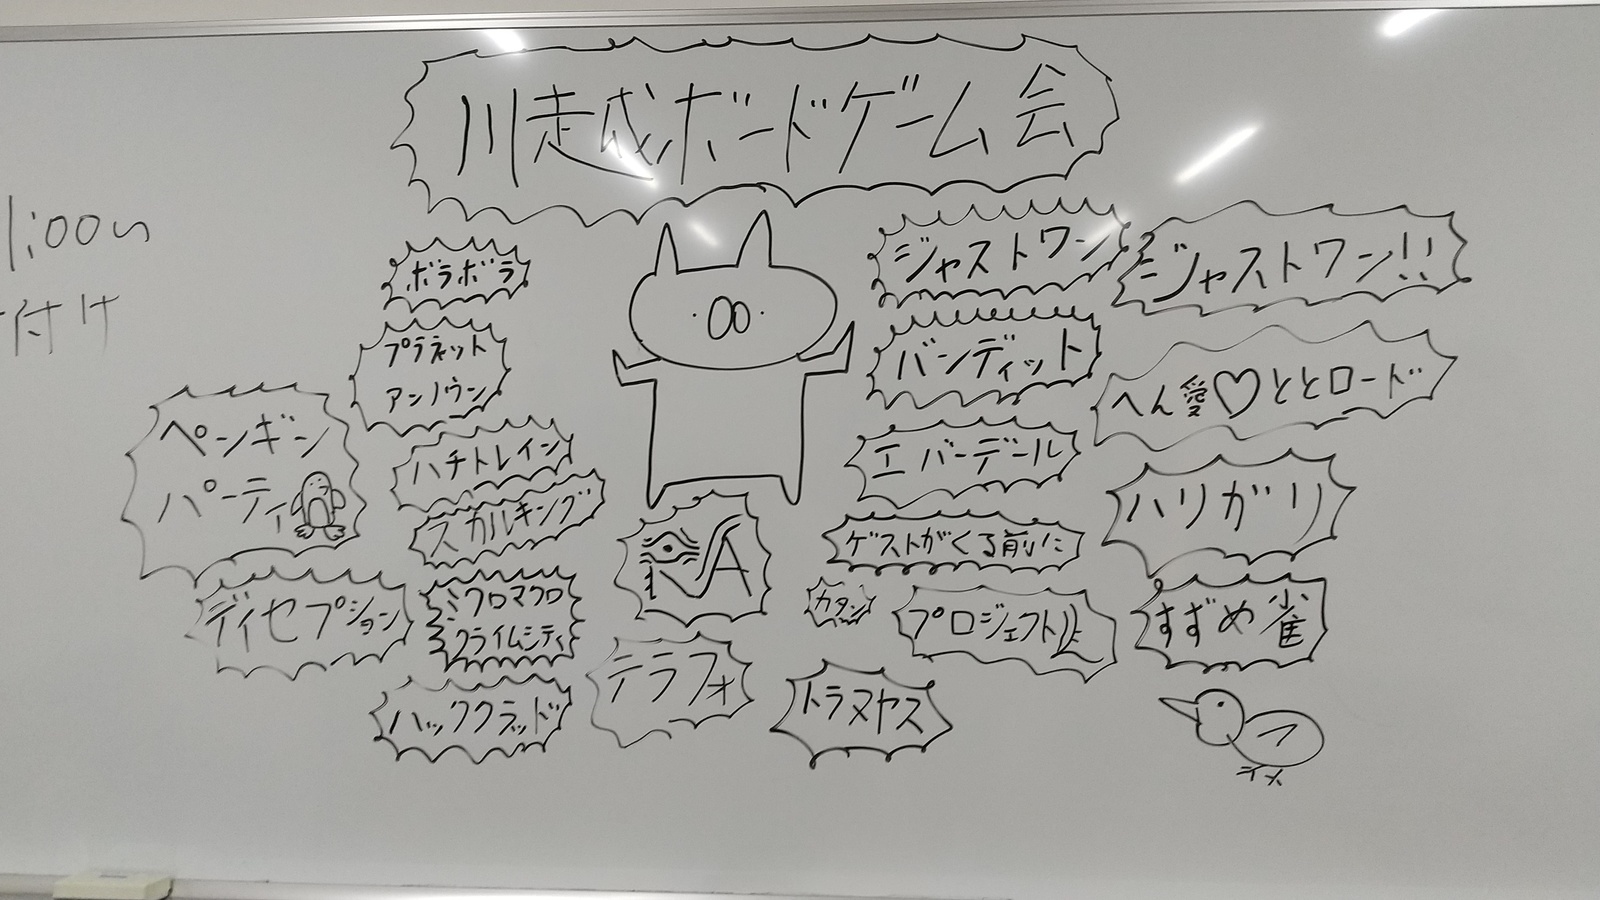 川越ボードゲーム会
1:00~
付け
ボラボラ
プラネット
アンノウン
ペンギン
パーティ
ハチトレイン
スカルキング
ディセプション
ミクロマクロ
クライムシティ
ハックアンドスラッシュ
RA
テラフォ
ジャストワン
ジャストワン!!
バンディット
へん愛♡ととロード
エバーデール
ハリガリ
ゲストがくる前に
カタン
プロジェクトL
すずめ雀
トラヌヤス